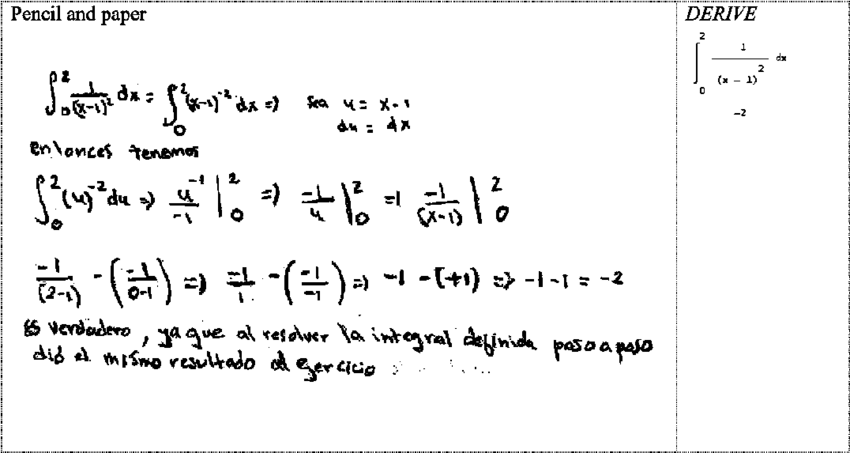 Pencil and paper
DERIVE
∫₀² 1/(x-1)² dx = ∫₀² (x-1)⁻² dx => sea u = x-1
du = dx
entonces tenemos
∫₀² (u)⁻² du => u⁻¹/-1 |₀² => -1/u |₀² => -1/(x-1) |₀²
-1/(2-1) - (-1/0-1) => -1/1 - (-1/-1) => -1 - (+1) => -1-1 = -2
es verdadero, ya que al resolver la integral definida paso a paso
dió el mismo resultado del ejercicio
∫₀² 1/(x - 1)² dx
-2